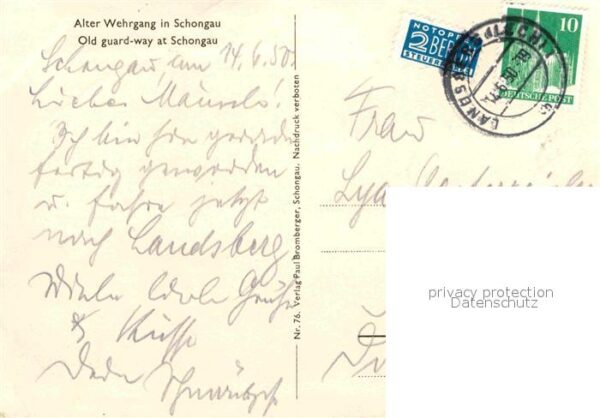 Alter Wehrgang in Schongau
Old guard-way at Schongau
Schongau, am 14.6.50.
Liebes Mäusle!
Ich bin hier gerade
fertig geworden
u. fahre jetzt
nach Landsberg
Viele liebe Grüße
& Küsse
Dein
Nr. 76. Verlag Paul Bromberger, Schongau. Nachdruck verboten
NOTOPFER
2 BERLIN
STEUERMARKE
10
DEUTSCHE POST
LANDSBERG (LECH)
Frau
Lya
privacy protection
Datenschutz